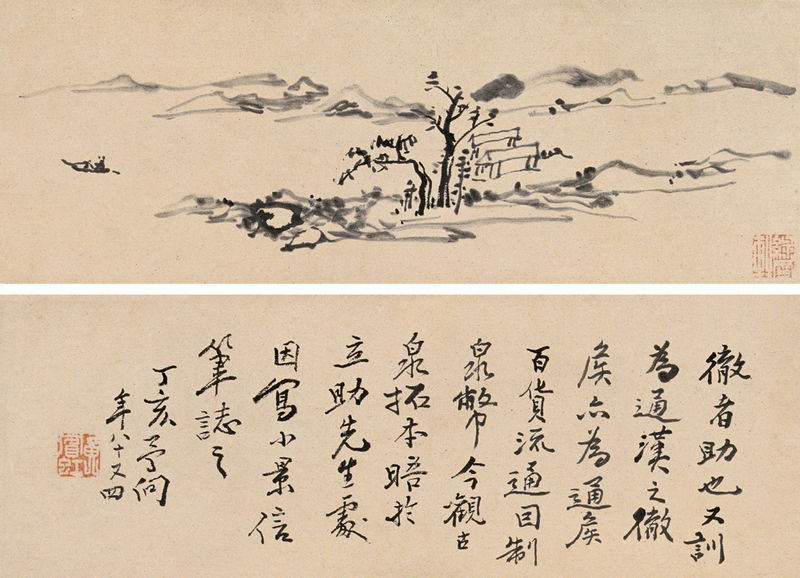 徹者助也又訓
為通漢之徹
矦亦為通矦
百貨流通因制
泉幣今觀古
泉拓本晤於
立助先生處
因寫小景信
筆誌之
丁亥予向
年八十又四
黃賓虹